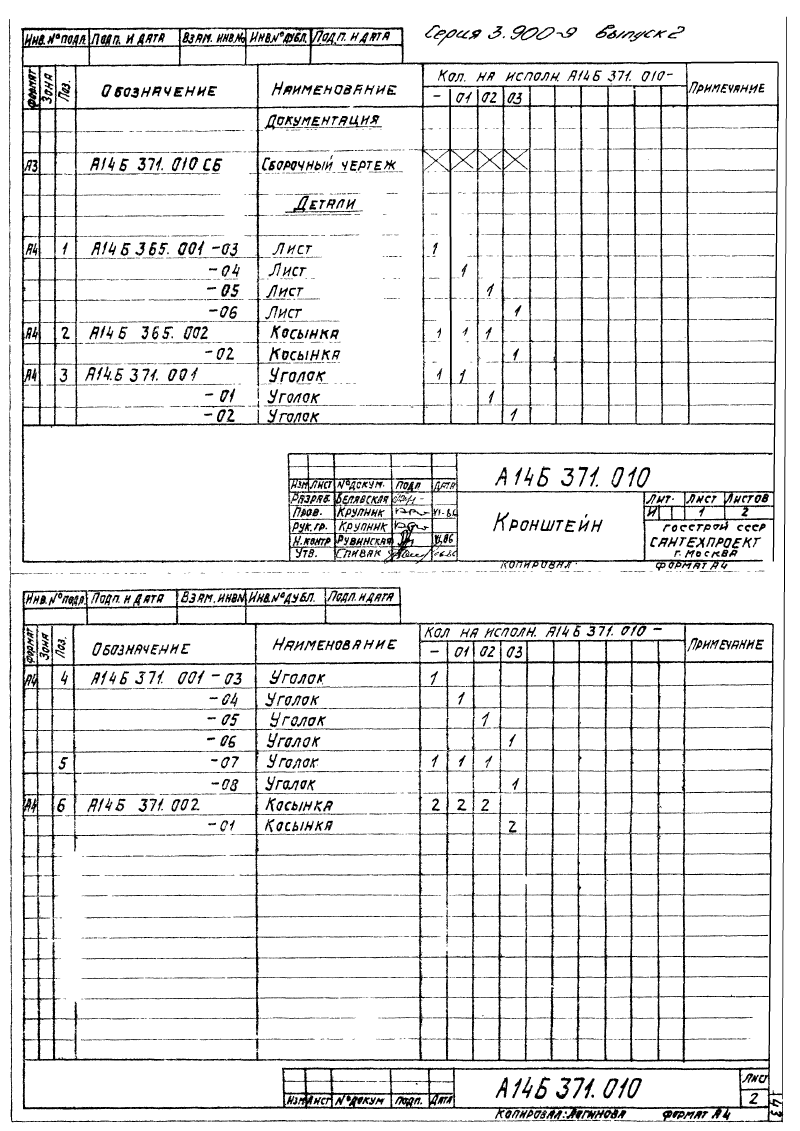 Инв.№подл. Подп. и дата Взам. инв.№ Инв.№дубл. Подп. и дата
Серия 3.900-9 Выпуск 2
Формат Зона Поз. Обозначение Наименование Кол. на исполн. А14Б 371.010- Примечание
- 01 02 03
Документация
А3 А14Б 371.010 СБ Сборочный чертеж
Детали
А4 1 А14Б 365.001-03 Лист 1
-04 Лист 1
-05 Лист 1
-06 Лист 1
А4 2 А14Б 365.002 Косынка 1 1 1
-02 Косынка 1
А4 3 А14.Б 371.001 Уголок 1 1
-01 Уголок 1
-02 Уголок 1
А14Б 371.010
Изм Лист №докум. Подп Дата
Разраб. Белявская
Пров. Крупник VI-86
Рук.гр. Крупник
Н.контр Рувинская VI.86
Утв. Спивак
Кронштейн
Лит. Лист Листов
И 1 2
Госстрой СССР
Сантехпроект
г. Москва
Копировал: Формат А4
Инв.№подл. Подп. и дата Взам. инв№ Инв.№дубл. Подп. и дата
Формат Зона Поз. Обозначение Наименование Кол на исполн. А14Б 371.010 - Примечание
- 01 02 03
А4 4 А14Б 371 001-03 Уголок 1
-04 Уголок 1
-05 Уголок 1
-06 Уголок 1
5 -07 Уголок 1 1 1
-08 Уголок 1
А4 6 А14Б 371.002 Косынка 2 2 2
-01 Косынка 2
Изм Лист №докум Подп. Дата
А14Б 371.010
Лист
2
Копировал: Логинова Формат А4
143